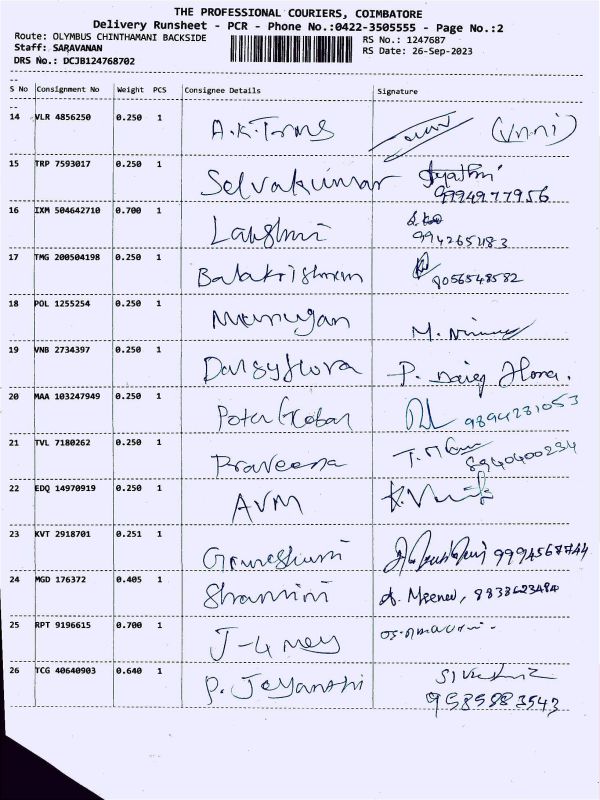 THE PROFESSIONAL COURIERS, COIMBATORE
Delivery Runsheet - PCR - Phone No.:0422-3505555 - Page No.:2
Route: OLYMBUS CHINTHAMANI BACKSIDE
RS No.: 1247687
Staff: SARAVANAN
RS Date: 26-Sep-2023
DRS No.: DCJB124768702
S No Consignment No Weight PCS Consignee Details Signature
14 VLR 4856250 0.250 1 A.K.Tmms (Vnni)
15 TRP 7593017 0.250 1 Selvakumar Jyathi
9994977956
16 IXM 504642710 0.700 1 Lakshmi
17 TMG 200504198 0.250 1 Balakrishnan 9056548582
18 POL 1255254 0.250 1 Murugan M.
19 VNB 2734397 0.250 1 Daisyflora P. Daisy Flora.
20 MAA 103247949 0.250 1 9894281053
21 TVL 7180262 0.250 1 Praveena 8940400234
22 EDQ 14970919 0.250 1 AVM
23 KVT 2918701 0.251 1 Gowreshwari 9994568744
24 MGD 176372 0.405 1 Shamini A. Meenea, 8838623484
25 RPT 9196615 0.700 1
26 TCG 40640903 0.640 1 P. Jeyanthi
9585983543